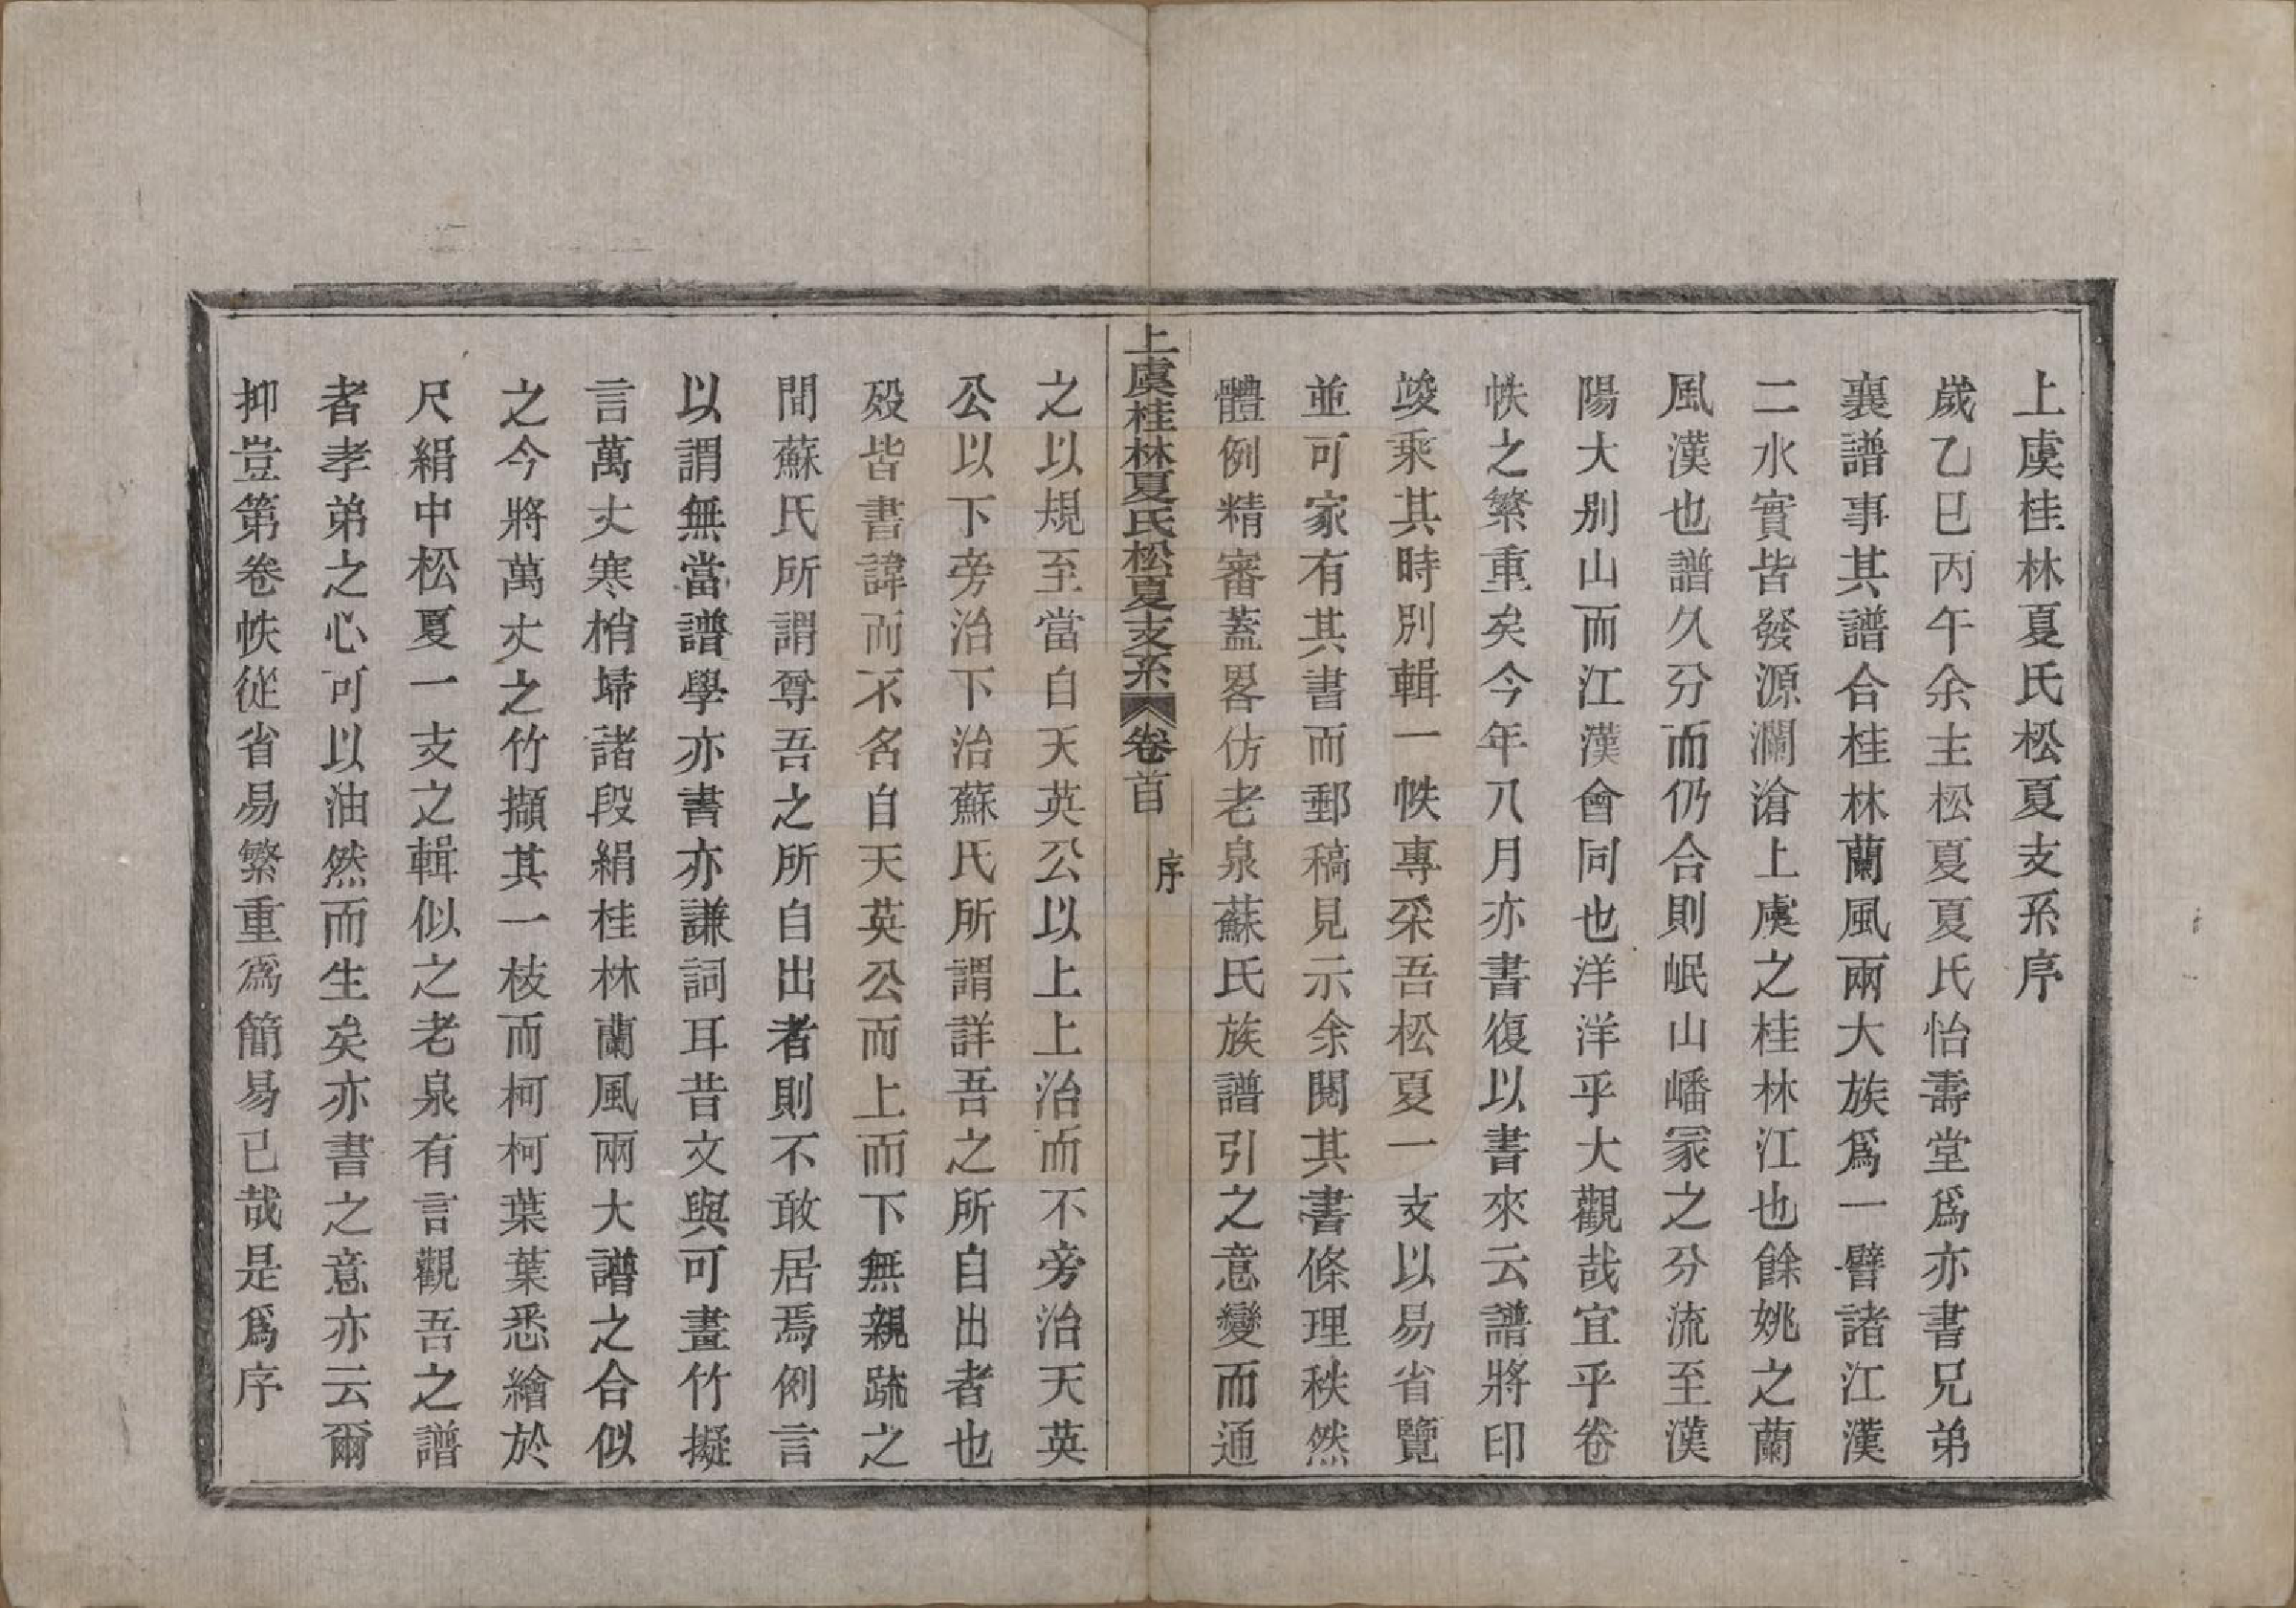 上虞桂林夏氏松夏支系序
歲乙巳丙午余主松夏夏氏怡壽堂爲亦書兄弟
襄譜事其譜合桂林蘭風兩大族爲一譬諸江漢
二水實皆發源瀾滄上虞之桂林江也餘姚之蘭
風漢也譜久分而仍合則岷山嶓冢之分流至漢
陽大別山而江漢會同也洋洋乎大觀哉宜乎卷
帙之繁重矣今年八月亦書復以書來云譜將印
竣乘其時別輯一帙專采吾松夏一支以易省覽
並可家有其書而郵稿見示余閱其書條理秩然
體例精審蓋畧仿老泉蘇氏族譜引之意變而通
上虞桂林夏氏松夏支系 卷首 序
之以規至當自天英公以上上治而不旁治天英
公以下旁治下治蘇氏所謂詳吾之所自出者也
殁皆書諱而不名自天英公而上而下無親疏之
間蘇氏所謂尊吾之所自出者則不敢居焉例言
以謂無當譜學亦書亦謙詞耳昔文與可畫竹擬
言萬丈寒梢埽諸段絹桂林蘭風兩大譜之合似
之今將萬丈之竹擷其一枝而柯柯葉葉悉繪於
尺絹中松夏一支之輯似之老泉有言觀吾之譜
者孝弟之心可以油然而生矣亦書之意亦云爾
抑豈第卷帙從省易繁重爲簡易已哉是爲序